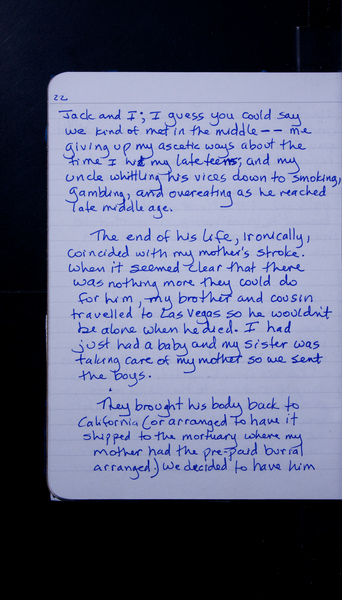 22
Jack and I; I guess you could say
we kind of met in the middle -- me
giving up my ascetic ways about the
time I hit my late teens; and my
uncle whittling his vices down to smoking,
gambling, and overeating as he reached
late middle age.
The end of his life, ironically,
coincided with my mother's stroke.
When it seemed clear that there
was nothing more they could do
for him, my brother and cousin
travelled to Las Vegas so he wouldn't
be alone when he died. I had
just had a baby and my sister was
taking care of my mother so we sent
the boys.
They brought his body back to
California (or arranged to have it
shipped to the mortuary where my
mother had the pre-paid burial
arranged.) We decided to have him